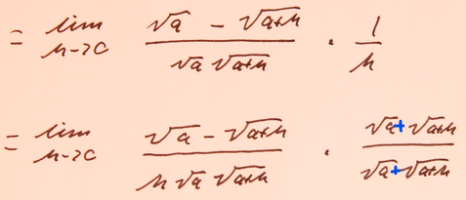 = lim h→0 (√a − √(a+h)) / (√a √(a+h)) · 1/h
= lim h→0 (√a − √(a+h)) / (h √a √(a+h)) · (√a + √(a+h)) / (√a + √(a+h))